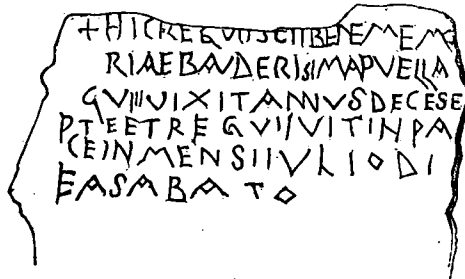 +HICREQVIISCITBENEMEMO
RIAEBAVDERISIMAPVELLA
QVIIIVIXITANNVSDECESE
PTEETREQVIIVITINPA
CEINMENSIIVLIODI
EASABATO